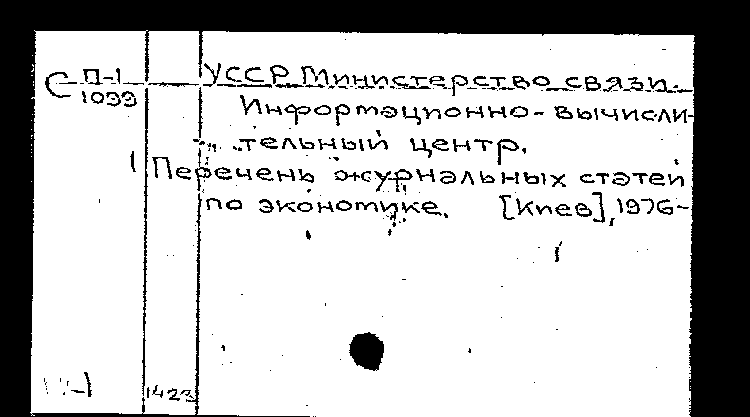 С П-1
1033
УССР Министерство связи.
Информационно-вычисли-
тельный центр.
Перечень журнальных статей
по экономике. [Киев], 1976-
1423